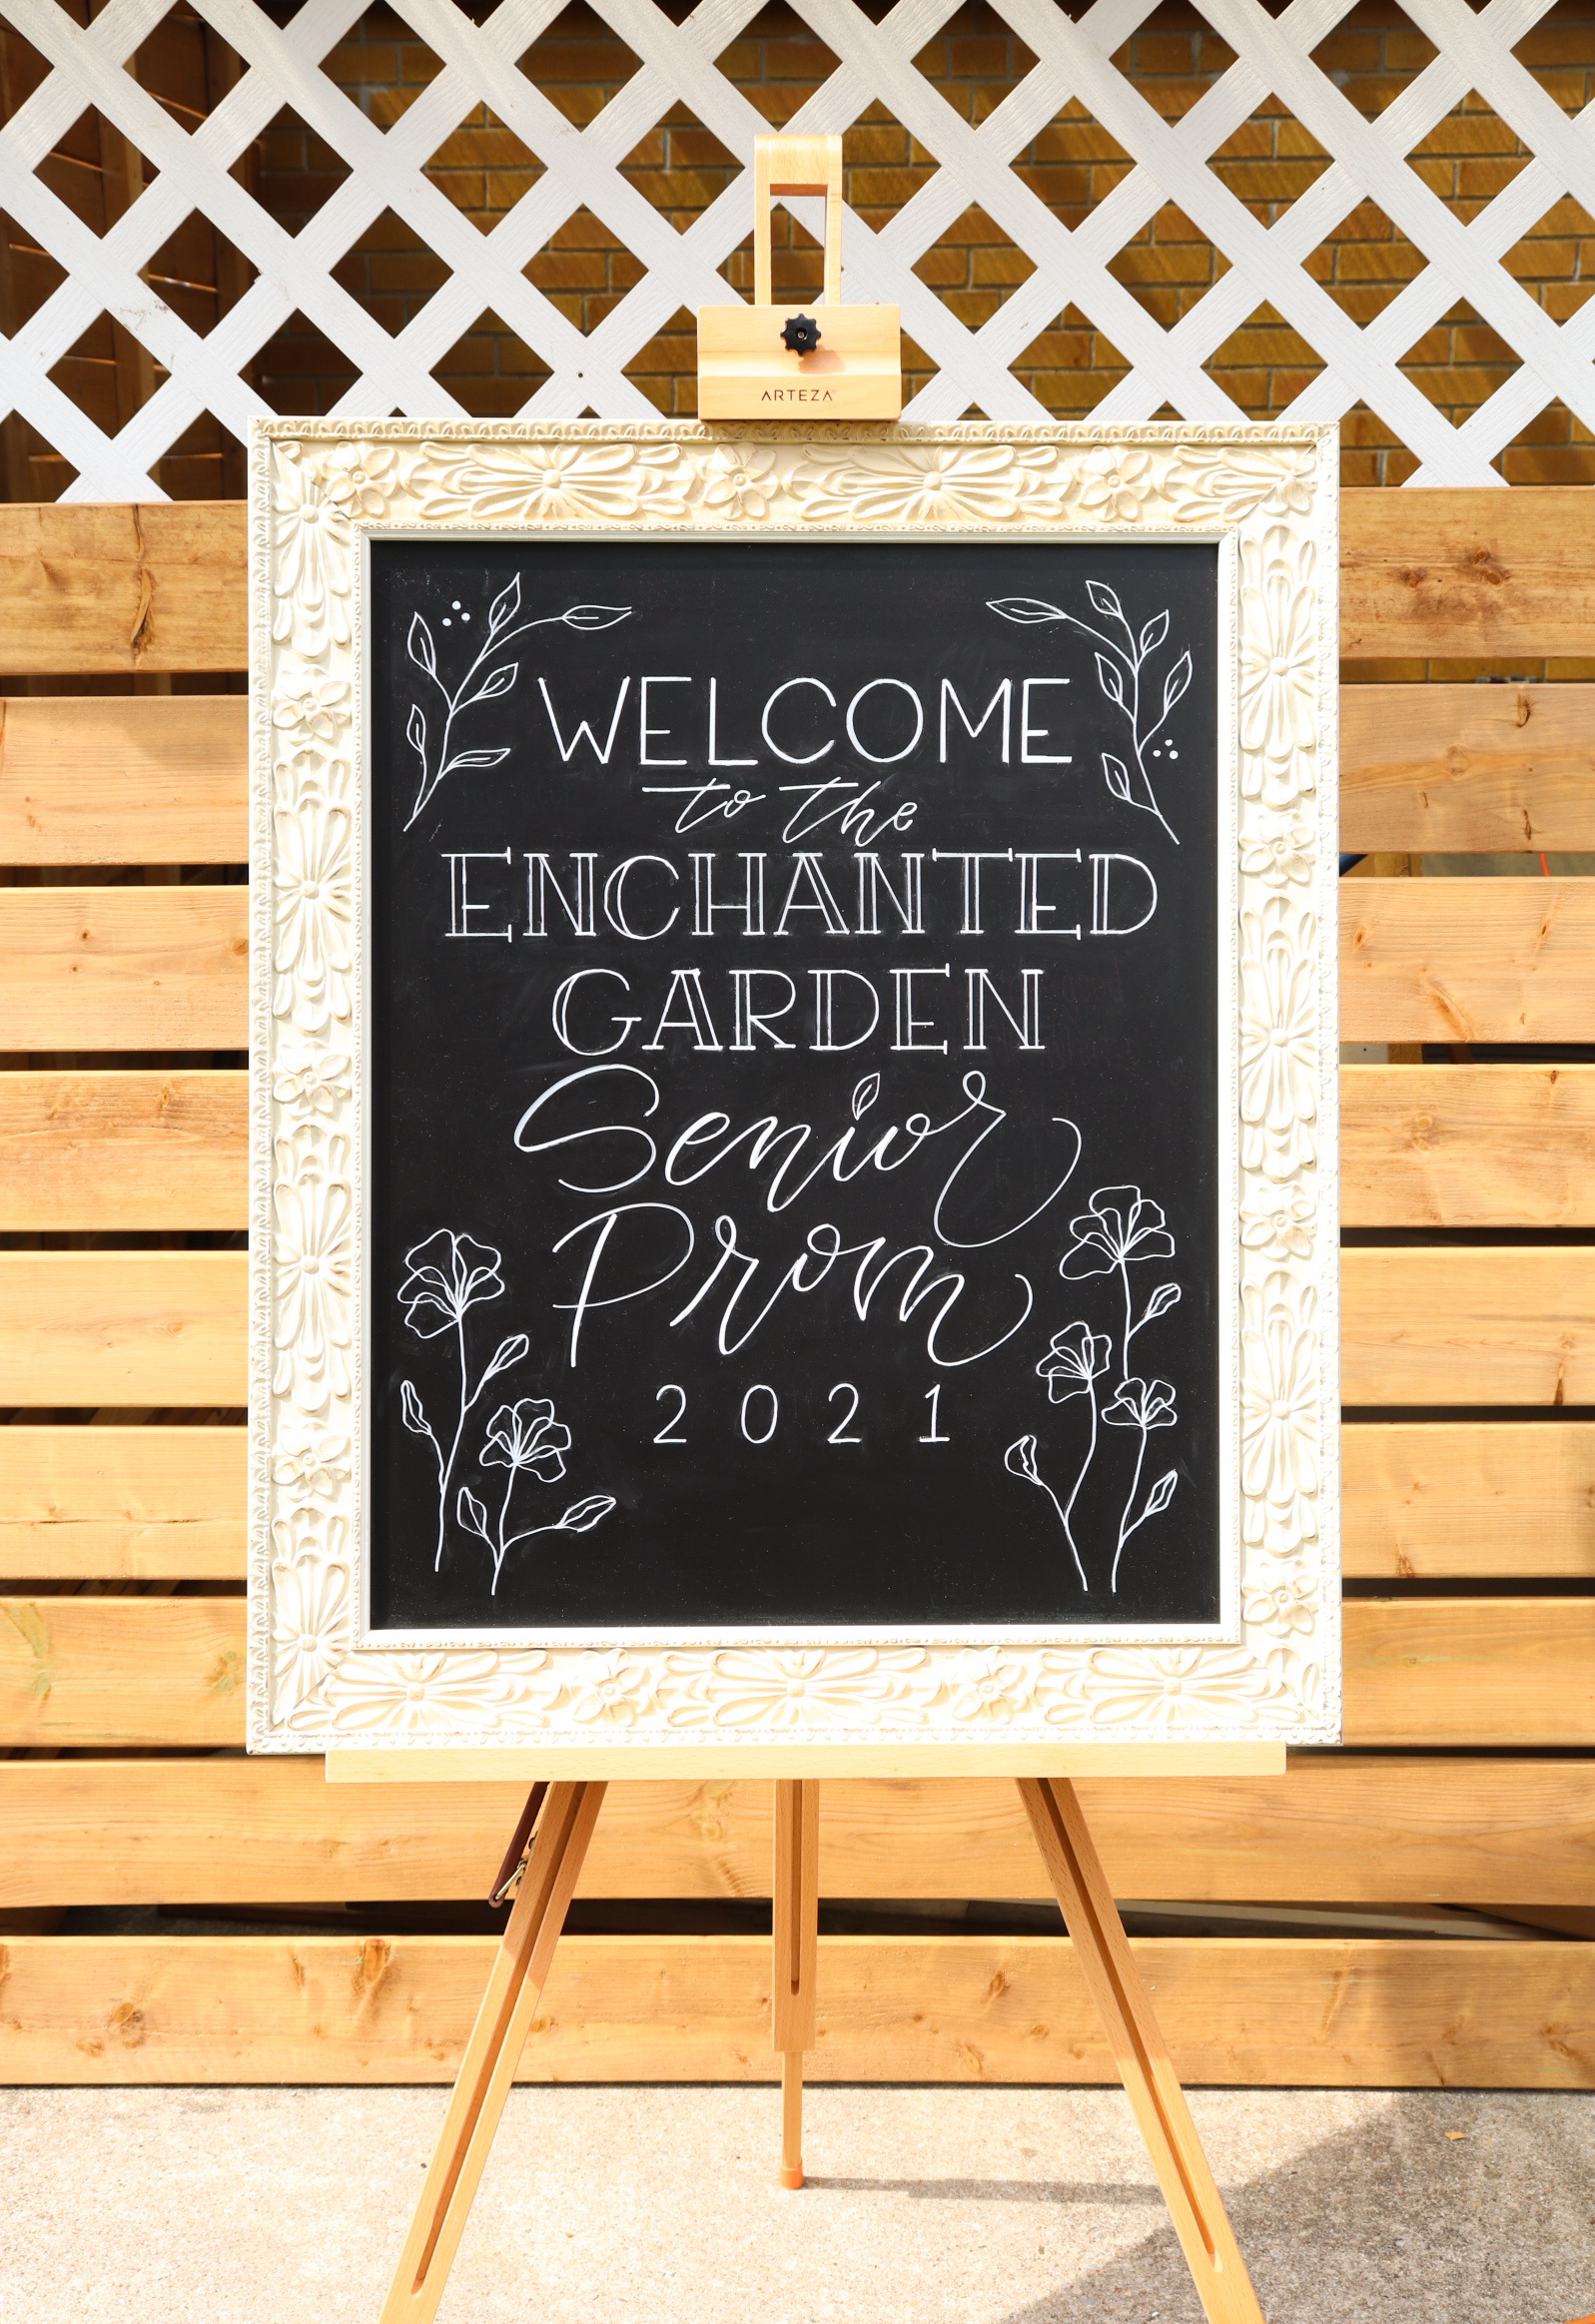 ARTEZA
WELCOME
to the
ENCHANTED
GARDEN
Senior
Prom
2021